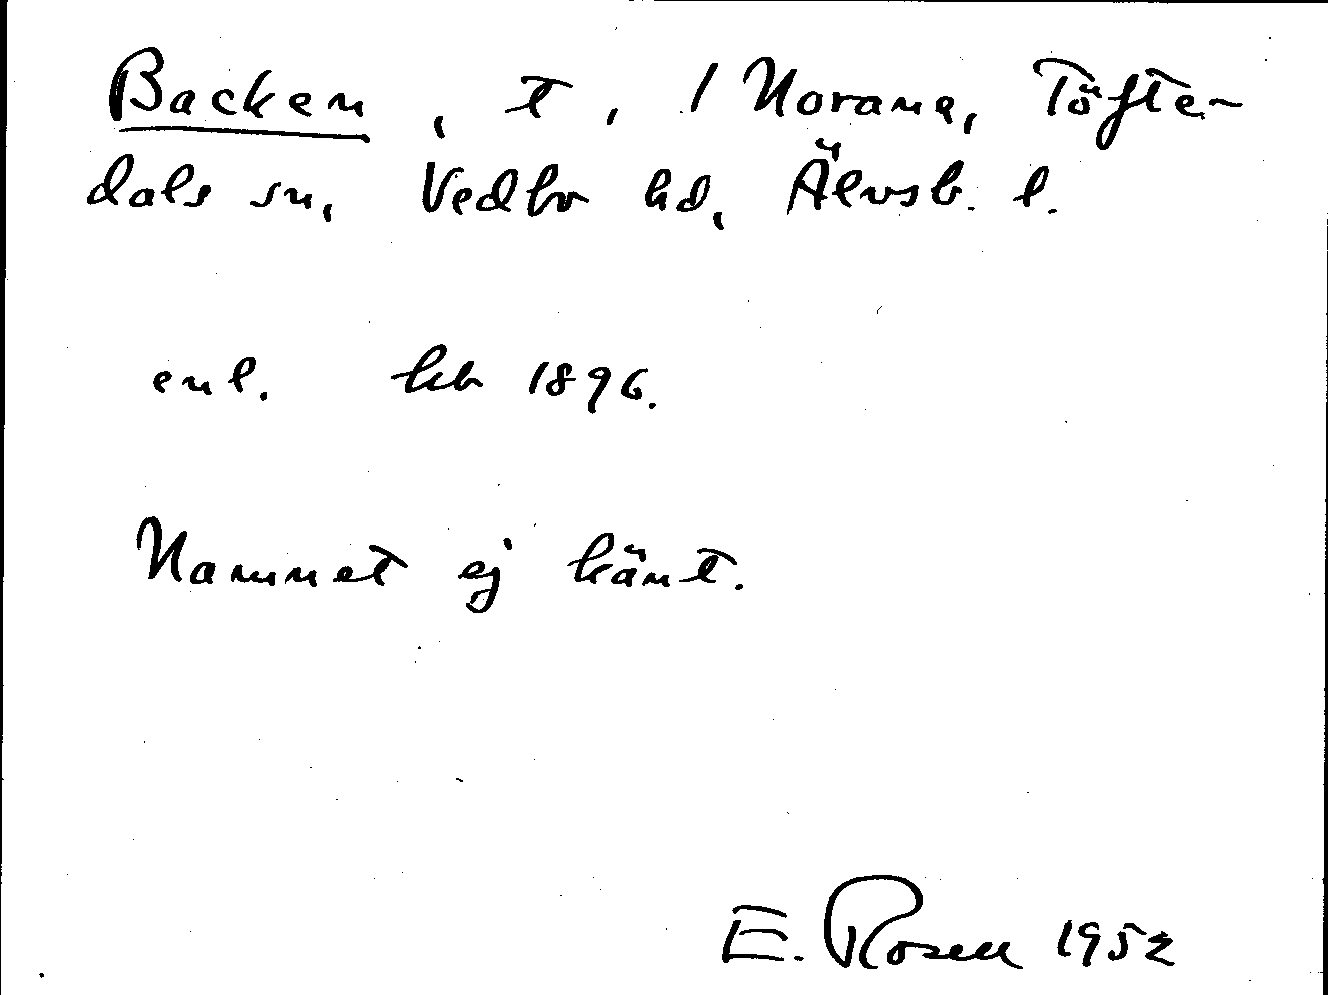 Backen, t, / Norane, Töfte-
dals sn, Vedbo hd, Älvsb. l.
enl. kb 1896.
Namnet ej känt.
E. Rosell 1952